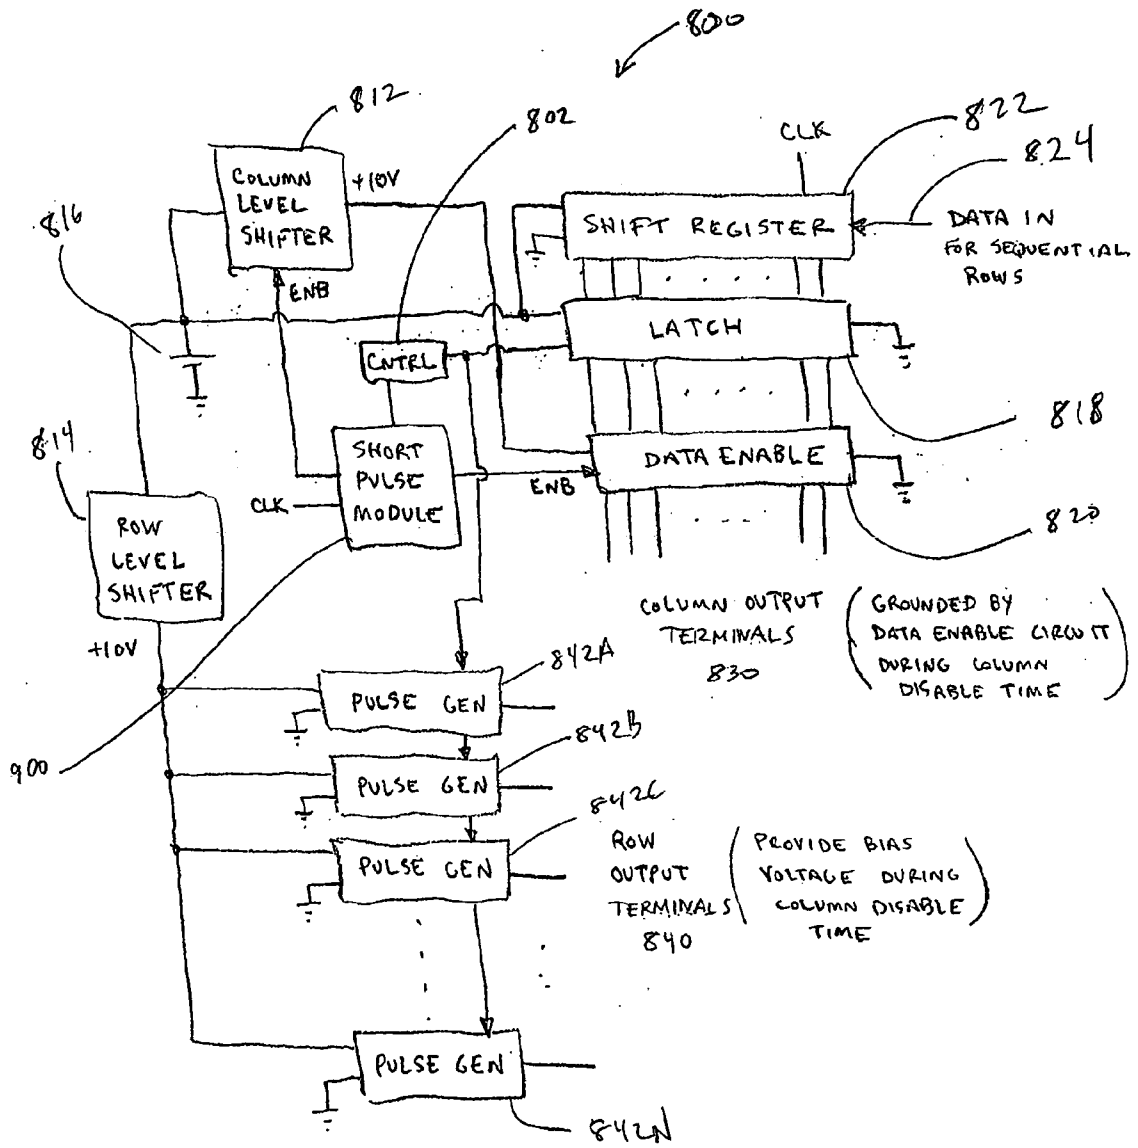 800
812
802
822
CLK
824
COLUMN
LEVEL
SHIFTER
+10V
816
SHIFT REGISTER
DATA IN
FOR SEQUENTIAL
ROWS
ENB
LATCH
CNTRL
818
814
SHORT
PULSE
MODULE
DATA ENABLE
ENB
CLK
820
ROW
LEVEL
SHIFTER
+10V
COLUMN OUTPUT
TERMINALS
830
GROUNDED BY
DATA ENABLE CIRCUIT
DURING COLUMN
DISABLE TIME
842A
PULSE GEN
842B
900
PULSE GEN
842C
PULSE GEN
ROW
OUTPUT
TERMINALS
840
PROVIDE BIAS
VOLTAGE DURING
COLUMN DISABLE
TIME
PULSE GEN
842N